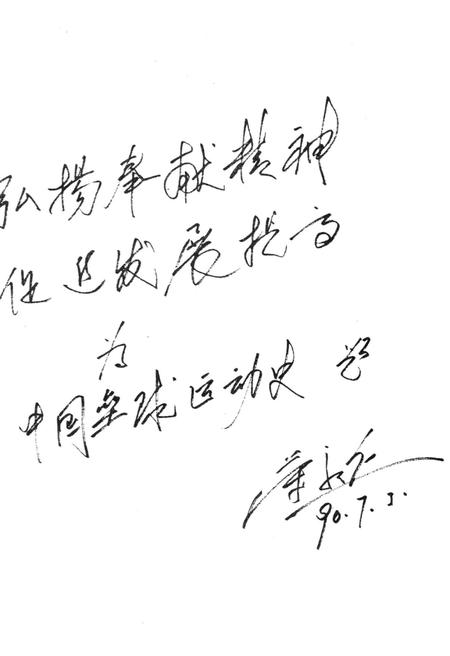 弘扬奉献精神
促进发展提高
为
中国垒球运动史 题
90.7.3.